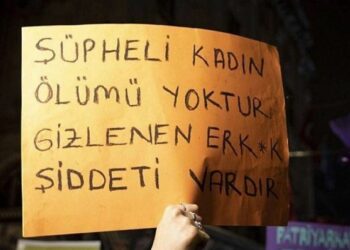 ŞÜPHELİ KADIN
ÖLÜMÜ YOKTUR
GİZLENEN ERK*K
ŞİDDETİ VARDIR
PATRİYARKA